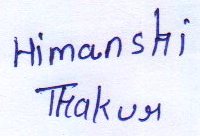 Himanshi
Thakur